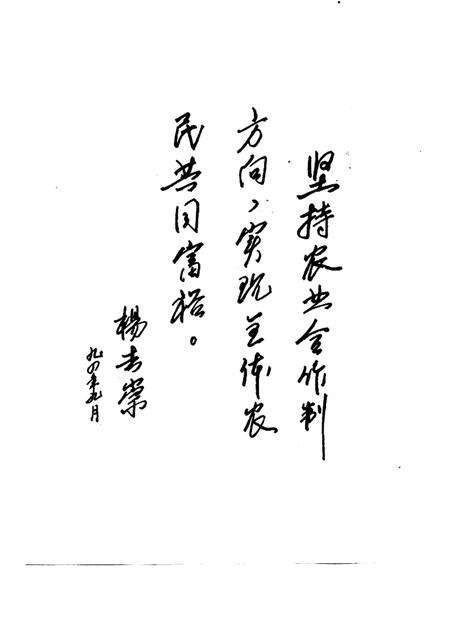 坚持农业合作制
方向，实现全体农
民共同富裕。
杨士崇
九四年九月